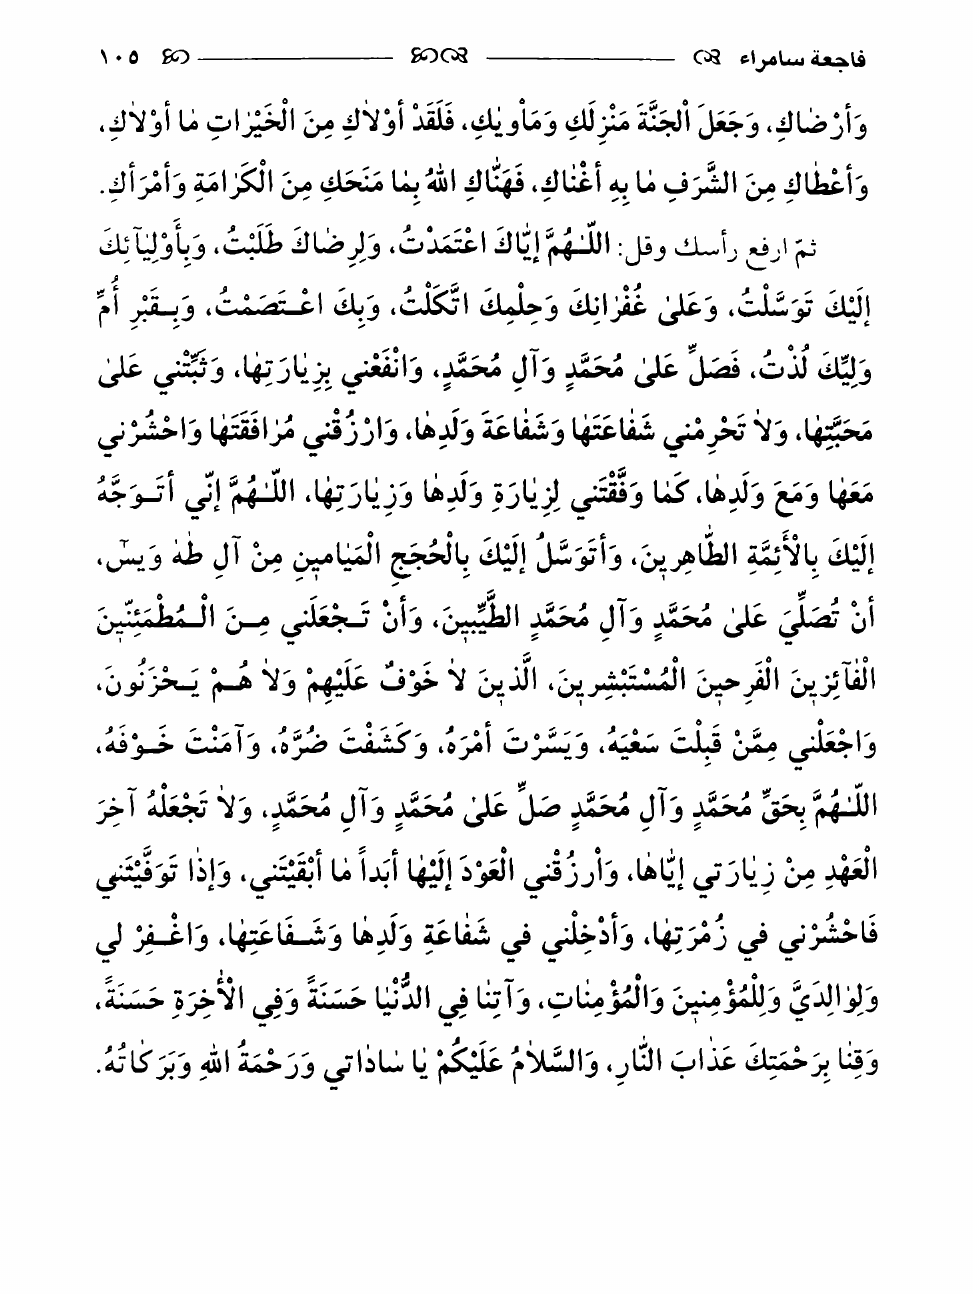 فاجعة سامراء ١٠٥
وَأَرْضاكِ، وَجَعَلَ الْجَنَّةَ مَنْزِلَكِ وَمَأْويٰكِ، فَلَقَدْ أَوْلاٰكِ مِنَ الْخَيْرٰاتِ مٰا أَوْلاٰكِ،
وَأَعْطٰاكِ مِنَ الشَّرَفِ مٰا بِهِ أَغْنٰاكِ، فَهَنَّاكِ اللّٰهُ بِمٰا مَنَحَكِ مِنَ الْكَرٰامَةِ وَأَمْرَأَكِ.
ثمّ ارفع رأسك وقل: اللّٰهُمَّ إِيّٰاكَ اعْتَمَدْتُ، وَلِرِضاكَ طَلَبْتُ، وَبِأَوْلِيٰآئِكَ
إِلَيْكَ تَوَسَّلْتُ، وَعَلىٰ غُفْرٰانِكَ وَحِلْمِكَ اتَّكَلْتُ، وَبِكَ اعْتَصَمْتُ، وَبِقَبْرِ أُمِّ
وَلِيِّكَ لُذْتُ، فَصَلِّ عَلىٰ مُحَمَّدٍ وَآلِ مُحَمَّدٍ، وَانْفَعْني بِزِيٰارَتِهٰا، وَثَبِّتْني عَلىٰ
مَحَبَّتِهٰا، وَلاٰ تَحْرِمْني شَفٰاعَتَهٰا وَشَفٰاعَةَ وَلَدِهٰا، وَارْزُقْني مُرٰافَقَتَهٰا وَاحْشُرْني
مَعَهٰا وَمَعَ وَلَدِهٰا، كَمٰا وَفَّقْتَني لِزِيٰارَةِ وَلَدِهٰا وَزِيٰارَتِهٰا، اللّٰهُمَّ إِنّي أَتَوَجَّهُ
إِلَيْكَ بِالْأَئِمَّةِ الطّٰاهِرينَ، وَأَتَوَسَّلُ إِلَيْكَ بِالْحُجَجِ الْمَيٰامينِ مِنْ آلِ طٰهٰ وَيسٓ،
أَنْ تُصَلِّيَ عَلىٰ مُحَمَّدٍ وَآلِ مُحَمَّدٍ الطَّيِّبينَ، وَأَنْ تَجْعَلَني مِنَ الْمُطْمَئِنّينَ
الْفٰآئِزينَ الْفَرِحينَ الْمُسْتَبْشِرينَ، الَّذينَ لاٰ خَوْفٌ عَلَيْهِمْ وَلاٰ هُمْ يَحْزَنُونَ،
وَاجْعَلْني مِمَّنْ قَبِلْتَ سَعْيَهُ، وَيَسَّرْتَ أَمْرَهُ، وَكَشَفْتَ ضُرَّهُ، وَآمَنْتَ خَوْفَهُ،
اللّٰهُمَّ بِحَقِّ مُحَمَّدٍ وَآلِ مُحَمَّدٍ صَلِّ عَلىٰ مُحَمَّدٍ وَآلِ مُحَمَّدٍ، وَلاٰ تَجْعَلْهُ آخِرَ
الْعَهْدِ مِنْ زِيٰارَتي إِيّٰاهٰا، وَأرزُقْني الْعَوْدَ إِلَيْهٰا أَبَداً مٰا أَبْقَيْتَني، وَإِذٰا تَوَفَّيْتَني
فَاحْشُرْني في زُمْرَتِهٰا، وَأَدْخِلْني في شَفٰاعَةِ وَلَدِهٰا وَشَفٰاعَتِهٰا، وَاغْفِرْ لي
وَلِوٰالِدَيَّ وَلِلْمُؤْمِنينَ وَالْمُؤْمِنٰاتِ، وَآتِنٰا فِي الدُّنْيٰا حَسَنَةً وَفِي الْأٰخِرَةِ حَسَنَةً،
وَقِنٰا بِرَحْمَتِكَ عَذٰابَ النّٰارِ، وَالسَّلاٰمُ عَلَيْكُمْ يٰا سٰادٰاتي وَرَحْمَةُ اللّٰهِ وَبَرَكٰاتُهُ.